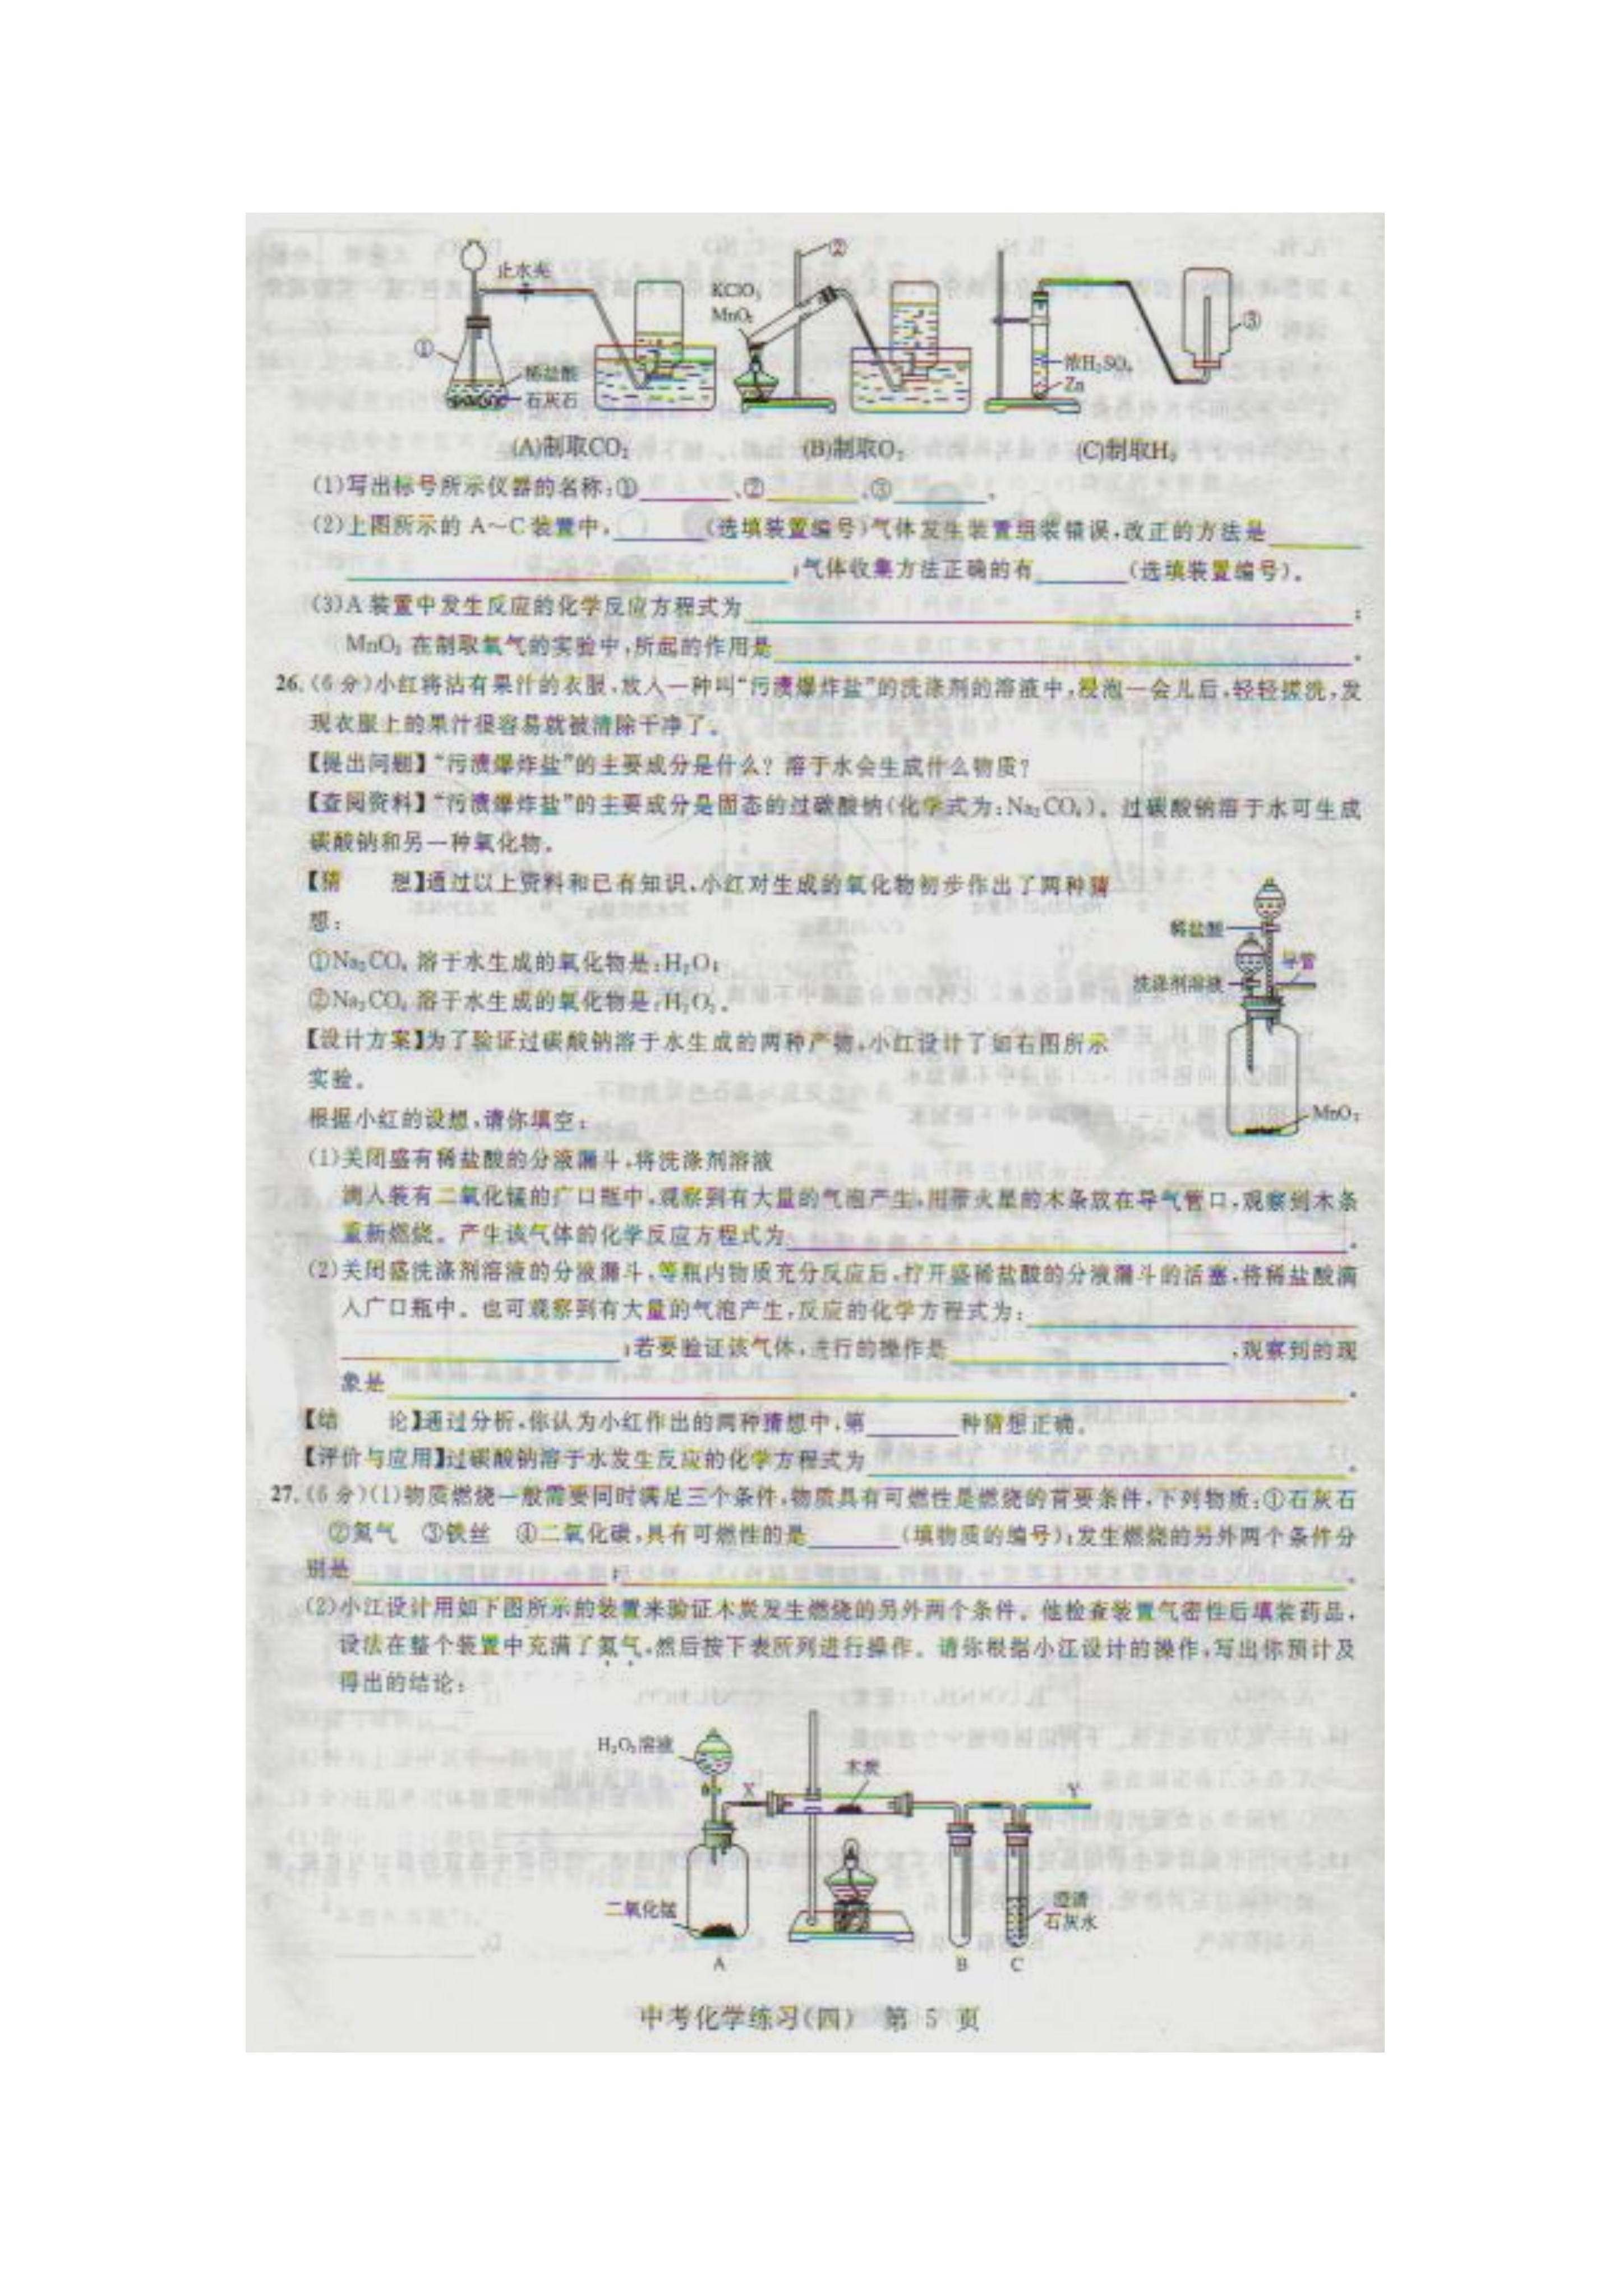 止水夹
①
稀盐酸
石灰石
②
KClO₃
MnO₂
③
浓H₂SO₄
Zn
(A)制取CO₂ (B)制取O₂ (C)制取H₂
(1)写出标号所示仪器的名称:①________、②________、③________。
(2)上图所示的 A～C 装置中,________(选填装置编号)气体发生装置组装错误,改正的方法是________
________;气体收集方法正确的有________(选填装置编号)。
(3)A 装置中发生反应的化学反应方程式为________;
MnO₂ 在制取氧气的实验中,所起的作用是________。
26.(6 分)小红将沾有果汁的衣服,放入一种叫“污渍爆炸盐”的洗涤剂的溶液中,浸泡一会儿后,轻轻搓洗,发
现衣服上的果汁很容易就被清除干净了。
【提出问题】“污渍爆炸盐”的主要成分是什么? 溶于水会生成什么物质?
【查阅资料】“污渍爆炸盐”的主要成分是固态的过碳酸钠(化学式为:Na₂CO₄)。过碳酸钠溶于水可生成
碳酸钠和另一种氧化物。
【猜 想】通过以上资料和已有知识,小红对生成的氧化物初步作出了两种猜
想:
①Na₂CO₄ 溶于水生成的氧化物是:H₂O;
②Na₂CO₄ 溶于水生成的氧化物是:H₂O₂。
【设计方案】为了验证过碳酸钠溶于水生成的两种产物,小红设计了如右图所示
实验。
稀盐酸
导管
洗涤剂溶液
MnO₂
根据小红的设想,请你填空:
(1)关闭盛有稀盐酸的分液漏斗,将洗涤剂溶液
滴入装有二氧化锰的广口瓶中,观察到有大量的气泡产生,用带火星的木条放在导气管口,观察到木条
重新燃烧。产生该气体的化学反应方程式为________。
(2)关闭盛洗涤剂溶液的分液漏斗,等瓶内物质充分反应后,拧开盛稀盐酸的分液漏斗的活塞,将稀盐酸滴
入广口瓶中。也可观察到有大量的气泡产生,反应的化学方程式为:________
________;若要验证该气体,进行的操作是________,观察到的现
象是________。
【结 论】通过分析,你认为小红作出的两种猜想中,第________种猜想正确。
【评价与应用】过碳酸钠溶于水发生反应的化学方程式为________。
27.(6 分)(1)物质燃烧一般需要同时满足三个条件,物质具有可燃性是燃烧的首要条件,下列物质:①石灰石
②氮气 ③铁丝 ④二氧化碳,具有可燃性的是________(填物质的编号);发生燃烧的另外两个条件分
别是________;________。
(2)小江设计用如下图所示的装置来验证木炭发生燃烧的另外两个条件。他检查装置气密性后填装药品,
设法在整个装置中充满了氮气,然后按下表所列进行操作。请你根据小江设计的操作,写出你预计及
得出的结论:
H₂O₂溶液
X
木炭
Y
二氧化锰
澄清
石灰水
A B C
中考化学练习(四) 第 5 页